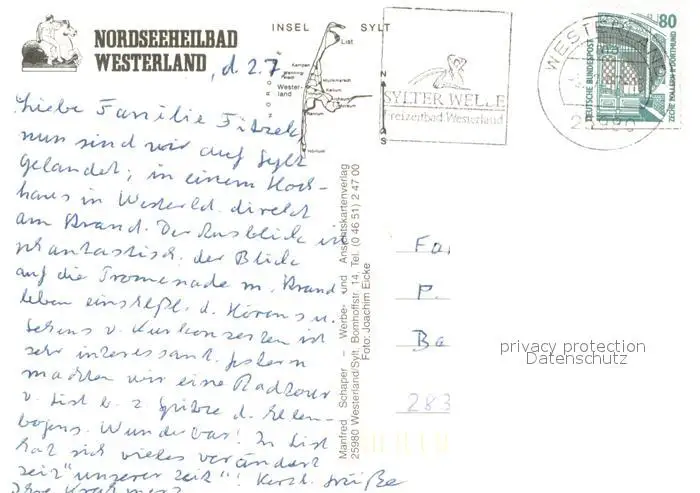 NORDSEEHEILBAD
WESTERLAND
INSEL SYLT
List
Kampen
Wester-
land
Hörnum
SYLTER WELLE
Freizeitbad Westerland
WESTERLAND
25980
DEUTSCHE BUNDESPOST
80
ZECHE ZOLLERN II · DORTMUND
, d. 2.7.
Liebe Familie
nun sind wir auf Sylt
gelandet, in einem Hoch-
haus in Westerld. direkt
am Strand. Der Ausblick ist
phantastisch, der Blick
auf die Promenade m. Strand
leben einschl. d. Hörens u.
Sehens v. Kurkonzerten ist
sehr interessant. Gestern
machten wir eine Radtour
v. List b. z. Spitze d. Ellen-
bogens. Wunderbar! In List
hat sich vieles verändert
seit "unserer Zeit"! Herzl. Grüße
Ihre
Manfred Schaper – Werbe- und Ansichtskartenverlag
25980 Westerland/Sylt, Bomhoffstr. 14, Tel. (0 46 51) 2 47 00
Foto: Joachim Eicke
Fa
P.
Ba
283
privacy protection
Datenschutz